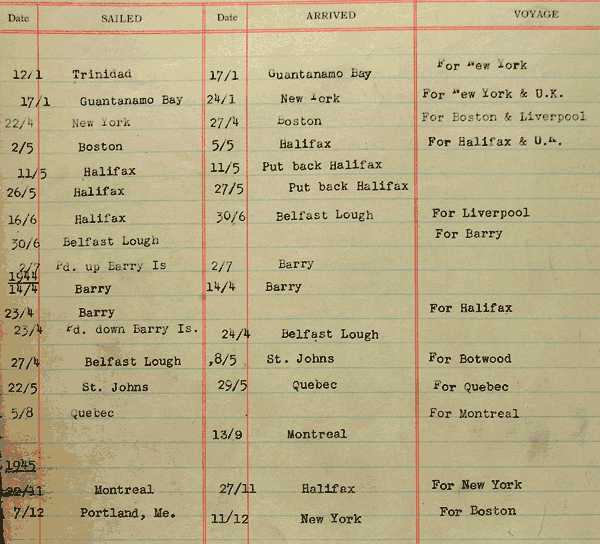 Date SAILED Date ARRIVED VOYAGE
12/1 Trinidad 17/1 Guantanamo Bay For New York
17/1 Guantanamo Bay 24/1 New York For New York & U.K.
22/4 New York 27/4 Boston For Boston & Liverpool
2/5 Boston 5/5 Halifax For Halifax & U.K.
11/5 Halifax 11/5 Put back Halifax
26/5 Halifax 27/5 Put back Halifax
16/6 Halifax 30/6 Belfast Lough For Liverpool
30/6 Belfast Lough For Barry
2/7 Pd. up Barry Is 2/7 Barry
1944
14/4 Barry 14/4 Barry
23/4 Barry For Halifax
23/4 Pd. down Barry Is. 24/4 Belfast Lough
27/4 Belfast Lough ,8/5 St. Johns For Botwood
22/5 St. Johns 29/5 Quebec For Quebec
5/8 Quebec For Montreal
13/9 Montreal
1945
22/11 Montreal 27/11 Halifax For New York
7/12 Portland, Me. 11/12 New York For Boston